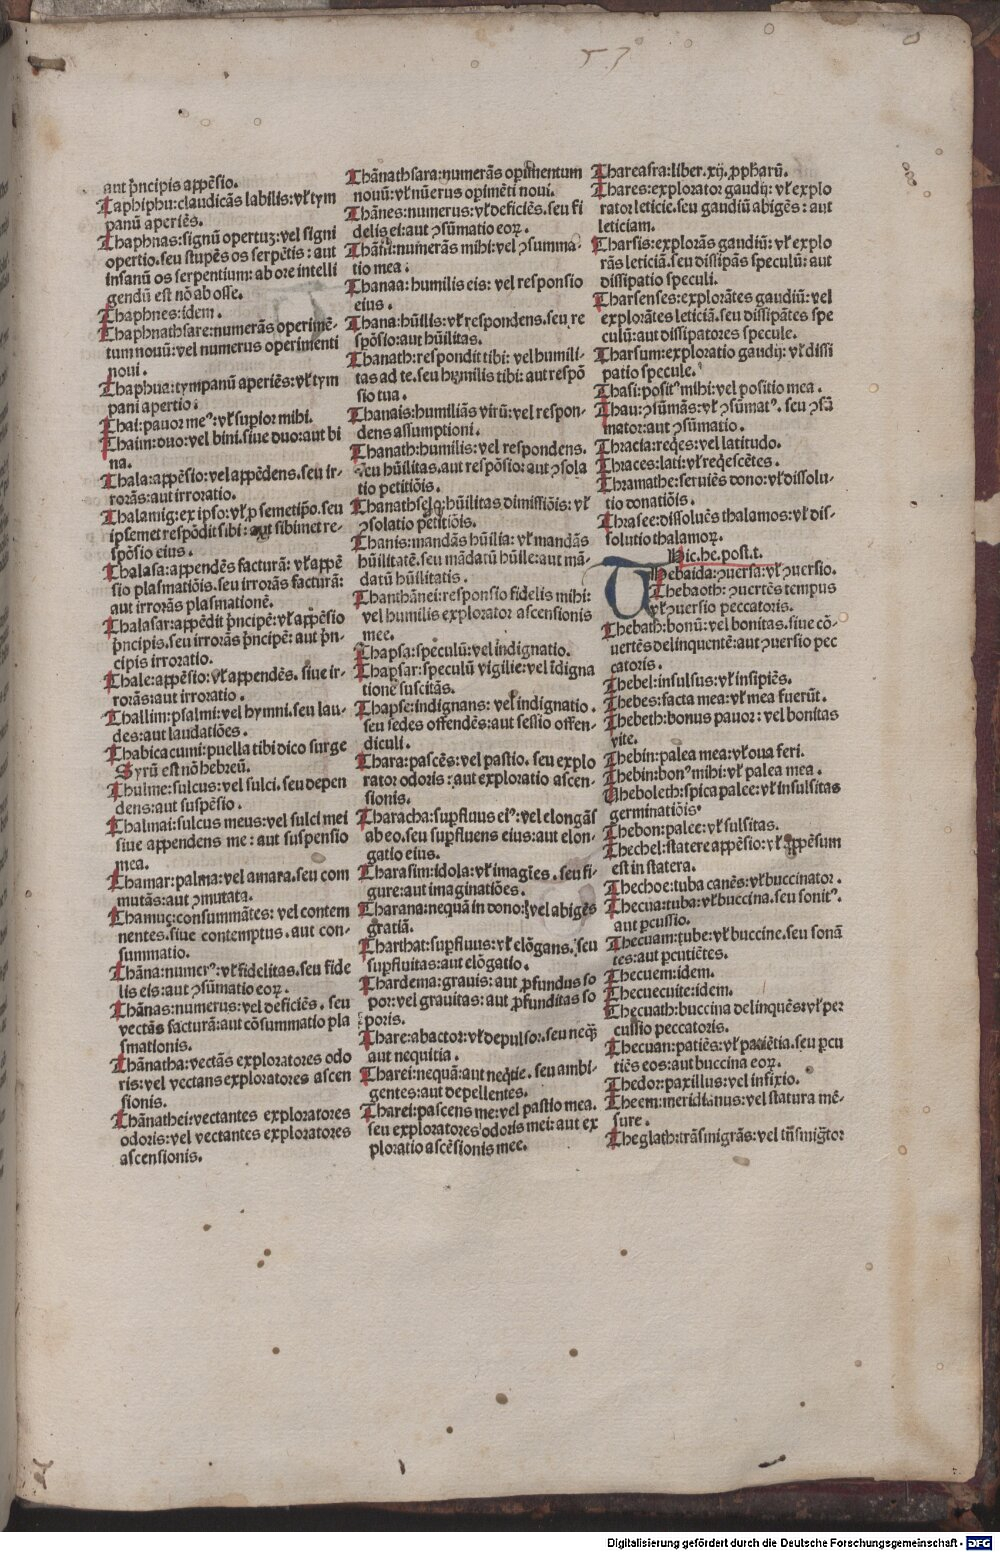 57
aut p̄ncipis appēsio.
Taphiphu:claudicās labilis:vł tym
panū aperiēs.
Thaphnas:signū opertuȝ:vel signi
opertio.seu stupēs os serpētis:aut
insanū os serpentium:ab ore intelli
gendū est nō ab osse.
Thaphnes:idem.
Thaphnathsare:numerās operimē-
tum nouū:vel numerus operimenti
noui.
Thaphua:tympanū aperiēs:vł tym
pani apertio.
Thai:pauor meꝰ:vł supior mihi.
Thaim:duo:vel bini.siue duo:aut bi
na.
Thala:appēsio:vel appēdens.seu ir-
rorās:aut irroratio.
Thalamig:ex ipso:vł p semetip̄o.seu
ipsemet respōdit sibi:aut sibimet re-
spōsio eius.
Thalasa:appendēs facturā:vł appē
sio plasmatiōis.seu irrorās facturā:
aut irrorās plasmationē.
Thalasar:appēdit p̄ncipē:vł appēsio
p̄ncipis.seu irrorās p̄ncipē:aut p̄n-
cipis irroratio.
Thale:appēsio:vł appendēs.siue ir-
rorās:aut irroratio.
Thallim:psalmi:vel hymni.seu lau-
des:aut laudatiōes.
Thabicacumi:puella tibi dico surge
Syrū est nō hebreū.
Thulme:sulcus:vel sulci.seu depen
dens:aut suspēsio.
Thalmai:sulcus meus:vel sulci mei
siue appendens me:aut suspensio
mea.
Thamar:palma:vel amara.seu com
mutās:aut ꝯmutata.
Thamuç:consummātes:vel contem
nentes.siue contemptus.aut con-
summatio.
Thāna:numerꝰ:vł fidelitas.seu fide
lis eis:aut ꝯsūmatio eoꝝ.
Thānas:numerus:vel deficiēs.seu
vectās facturā:aut cōsummatio pla
smationis.
Thānatha:vectās exploratores odo
ris:vel vectans exploratores ascen
sionis.
Thānathei:vectantes exploratores
odoris:vel vectantes exploratores
ascensionis.
Thānathsara:numerās operimentum
nouū:vł nūerus opimēti noui.
Thānes:numerus:vł deficiēs.seu fi
delis ei:aut ꝯsūmatio eoꝝ.
numerās mihi:vel ꝯsumma-
tio mea:
Thanaa:humilis eis:vel responsio
eius.
Thana:hūilis:vł respondens.seu re
spōsio:aut hūilitas.
Thanath:respondit tibi:vel humili-
tas ad te.seu humilis tibi:aut respō
sio tua.
Thanais:humiliās virū:vel respon-
dens assumptioni.
Thanath:humilis:vel respondens.
seu hūilitas.aut respōsio:aut ꝯsola
tio petitiōis.
hūilitas dimissiōis:vł
ꝯsolatio petitiōis.
Thanis:mandās hūilia:vł mandās
hūilitatē.seu mādatū hūile:aut mā-
datū hūilitatis.
Thanthānei:responsio fidelis mihi:
vel humilis explorator ascensionis
mee.
Thapsa:speculū:vel indignatio.
Thapsar:speculū vigilie:vel īdigna
tione suscitās.
Thapse:indignans:vel indignatio.
seu sedes offendēs:aut sessio offen-
diculi.
Thara:pascēs:vel pastio.seu explo
rator odoris:aut exploratio ascen-
sionis.
Tharacha:supfluus eiꝰ:vel elongās
ab eo.seu supfluens eius:aut elon-
gatio eius.
Tharasim:idola:vł imagīes.seu fi-
gure:aut imaginatiōes.
Tharana:nequā in dono:vel abigēs
gratiā.
Tharthat:supfluus:vł elōgans.seu
supfluitas:aut elōgatio.
Thardema:grauis:aut ꝓfundus so
por:vel grauitas:aut ꝓfunditas so
poris.
Thare:abactor:vł depulsor.seu neqȝ
aut nequitia.
Tharei:nequā:aut neqtie.seu ambi-
gentes:aut depellentes.
Tharei:pascens me:vel pastio mea.
seu exploratores odoris mei:aut ex
ploratio ascēsionis mee.
Thareasra:liber.xij.ꝓpharū.
Thares:explorator gaudij:vł explo
rator leticie.seu gaudiū abigēs:aut
leticiam.
Tharsis:explorās gaudiū:vł explo
rās leticiā.seu dissipās speculū:aut
dissipatio speculi.
Tharsenses:explorātes gaudiū:vel
explorātes leticiā.seu dissipātes spe
culū:aut dissipatores specule.
Tharsum:exploratio gaudij:vł dissi
patio specule.
Thasi:positꝰ mihi:vel positio mea.
Thau:ꝯsūmās:vł ꝯsūmatꝰ.seu ꝯsū
mator:aut ꝯsūmatio.
Thracia:reqes:vel latitudo.
Thraces:lati:vł reqescētes.
Thramathe:seruiēs dono:vł dissolu-
tio donatiōis.
Thrasee:dissoluēs thalamos:vł dis-
solutio thalamoꝝ.
Hic.he.post.t.
Thebaida:ꝯuersa:vł ꝯuersio.
Thebaoth:ꝯuertēs tempus
vł ꝯuersio peccatoris.
Thebath:bonū:vel bonitas.siue cō-
uertēs delinquentē:aut ꝯuersio pec
catoris.
Thebel:insulsus:vł insipiēs.
Thebes:facta mea:vł mea fuerūt.
Thebeth:bonus pauor:vel bonitas
vite.
Thebin:palea mea:vł oua feri.
Thebin:bonꝰ mihi:vł palea mea.
Theboleth:spica palee:vł insulsitas
germinatiōis.
Thebon:palee:vł sulsitas.
Thechel:statere appēsio:vł appēsum
est in statera.
Thechoe:tuba canēs:vł buccinator.
Thecua:tuba:vł buccina.seu sonitꝰ.
aut pcussio.
Thecuam:tube:vł buccine.seu sonā
tes:aut pcutiētes.
Thecuem:idem.
Thecuecuite:idem.
Thecuath:buccina delinquēs:vł per
cussio peccatoris.
Thecuan:patiēs:vł patiētia.seu pcu
tiēs eos:aut buccina eoꝝ.
Thedor:paxillus:vel infixio.
Theem:meridianus:vel statura mē-
sure.
Theglath:trāsmigrās:vel tn̄smigtor
Digitalisierung gefördert durch die Deutsche Forschungsgemeinschaft - DFG